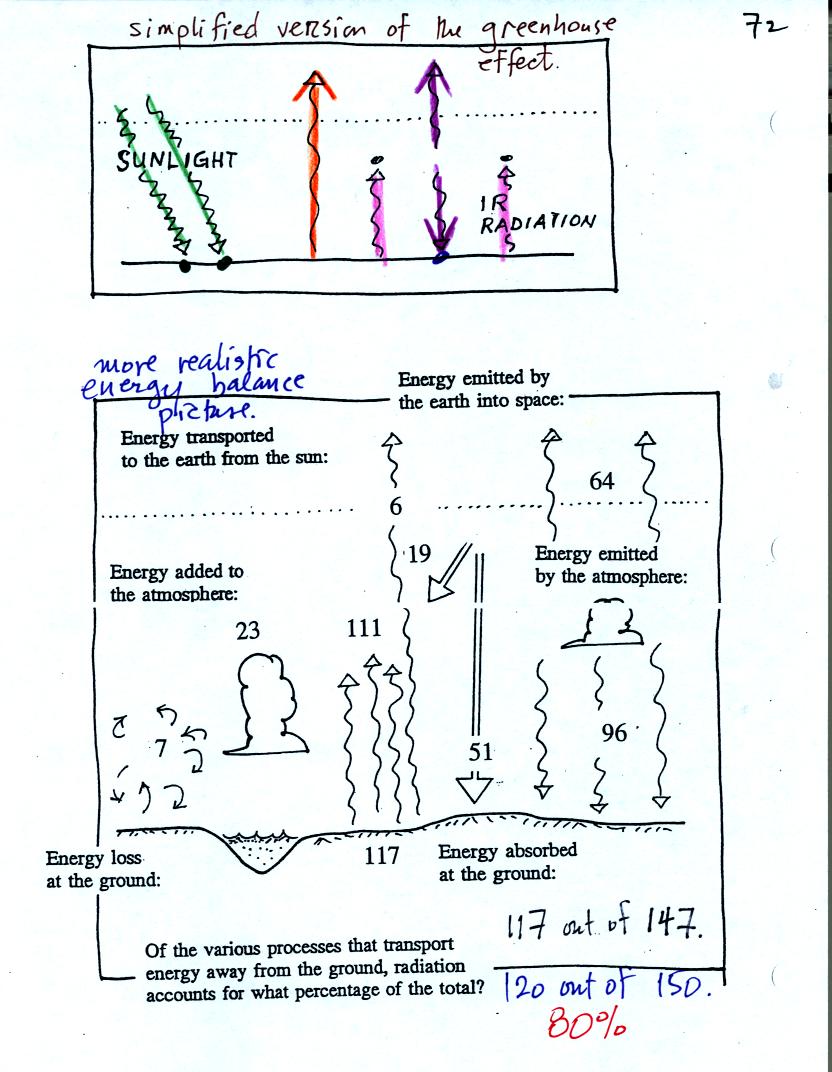 simplified version of the greenhouse
effect.
72
SUNLIGHT
IR
RADIATION
more realistic
energy balance
picture.
Energy emitted by
the earth into space:
Energy transported
to the earth from the sun:
64
6
19
Energy emitted
by the atmosphere:
Energy added to
the atmosphere:
23
111
7
96
51
Energy loss
at the ground:
117
Energy absorbed
at the ground:
117 out of 147.
Of the various processes that transport
energy away from the ground, radiation
accounts for what percentage of the total?
120 out of 150.
80%